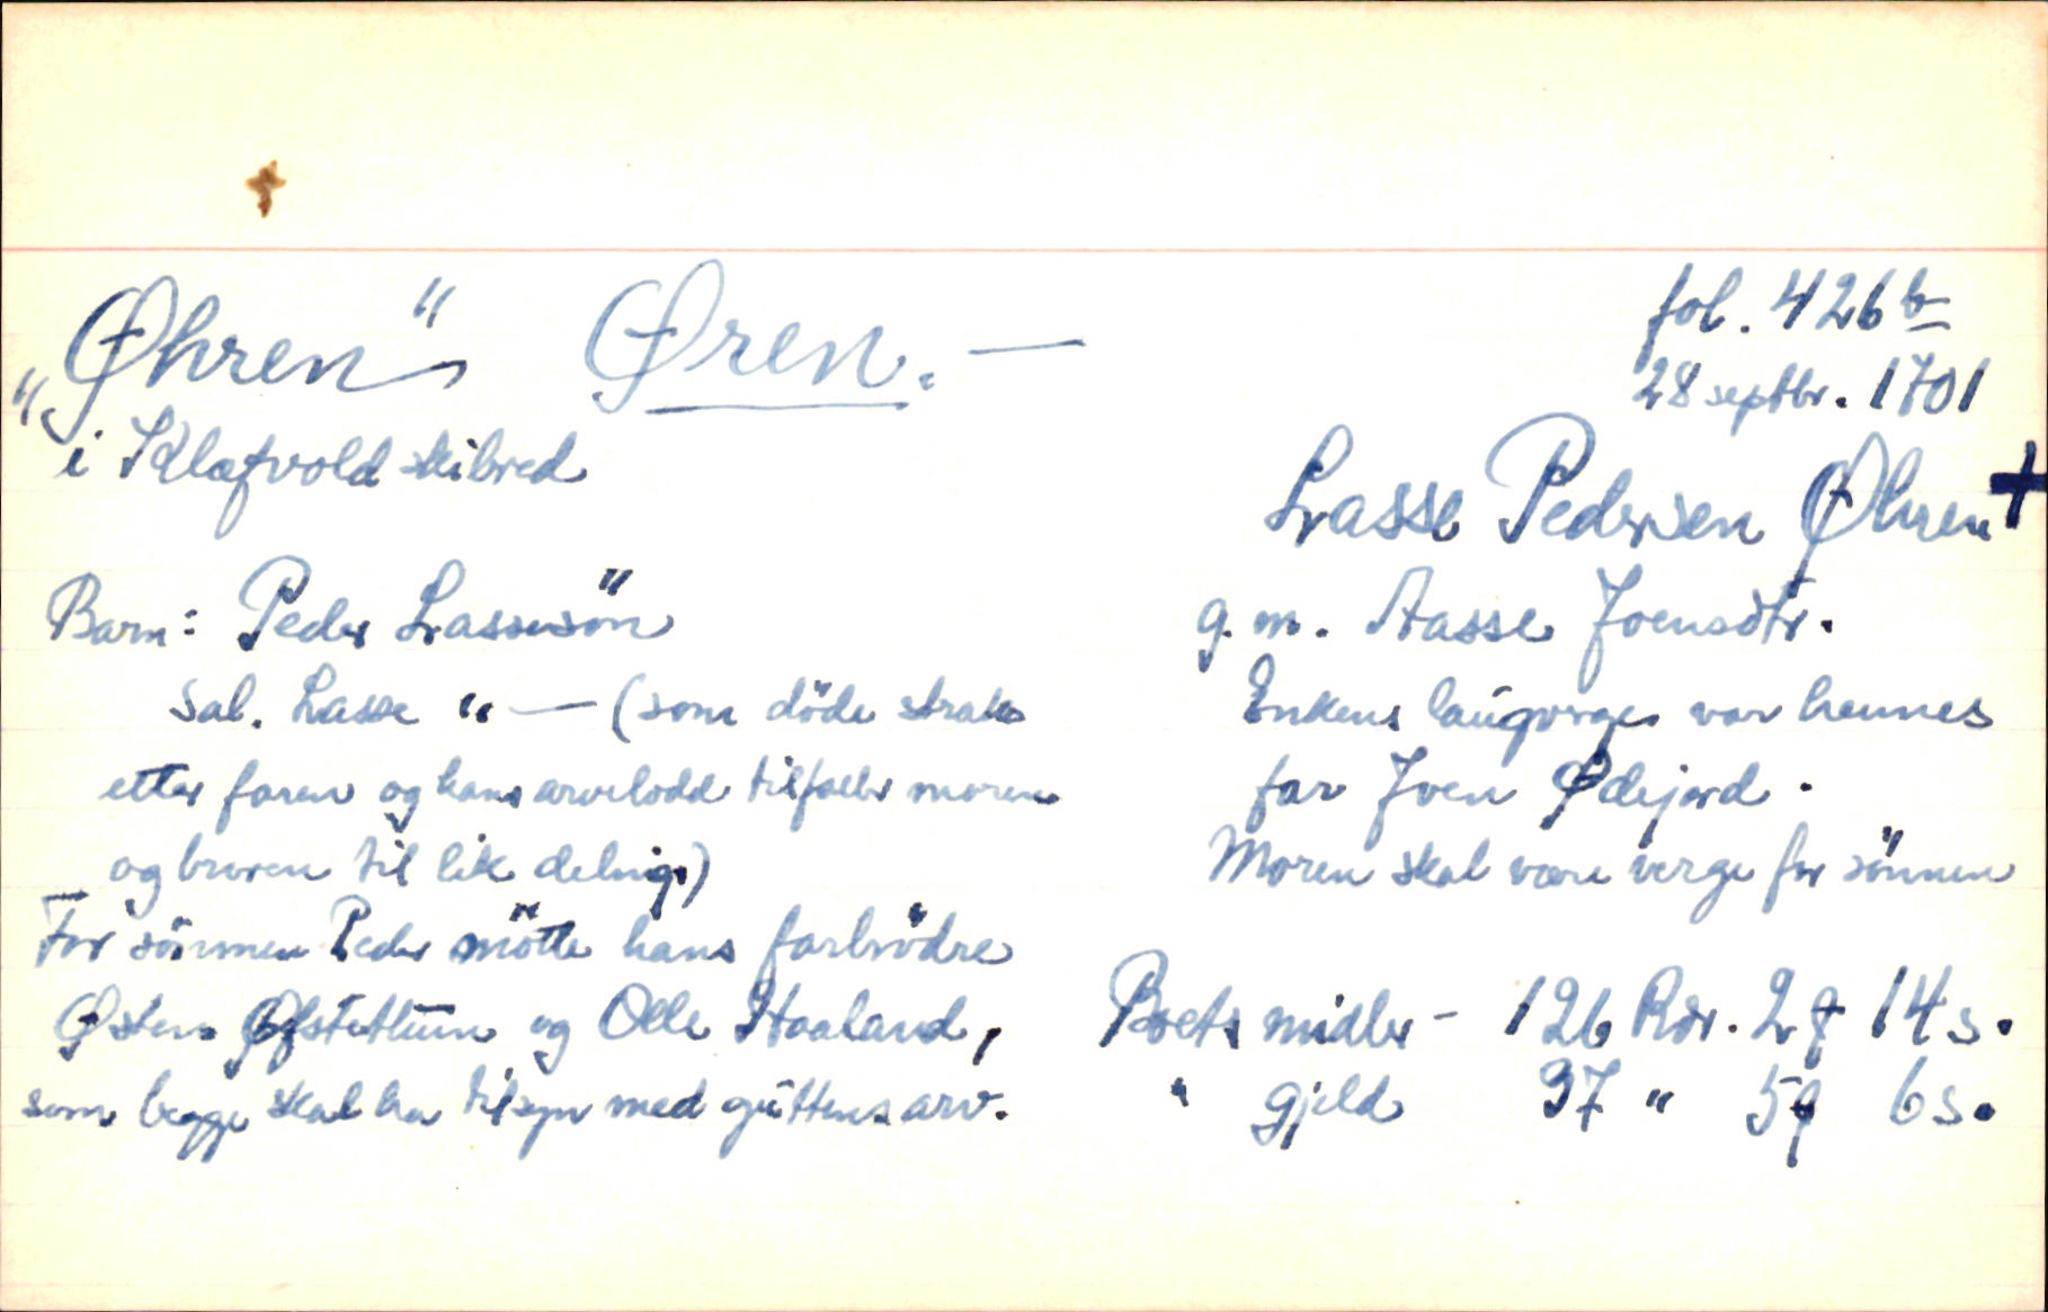 "Øhren" Øren. —
i Klæfvold skibred
Barn: Peder Lassesön
Sal. Lasse " — (som döde straks
etter faren og hans arvelodd tilfaller moren
og broren til lik deling)
For sönnen Peder mötte hans farbrödre
Østen Øfstetuun og Olle Haaland,
som begge skal ha tilsyn med guttens arv.
fol. 426 b
28 septbr. 1701
Lasse Pedersen Øhren +
g. m. Aasse Joensdtr.
Enkens laugverge var hennes
far Joen Ødejord.
Moren skal være verge for sönnen
Boets midler - 126 Rdr. 2 q 14 s.
" gjeld 37 " 5 q 6 s.